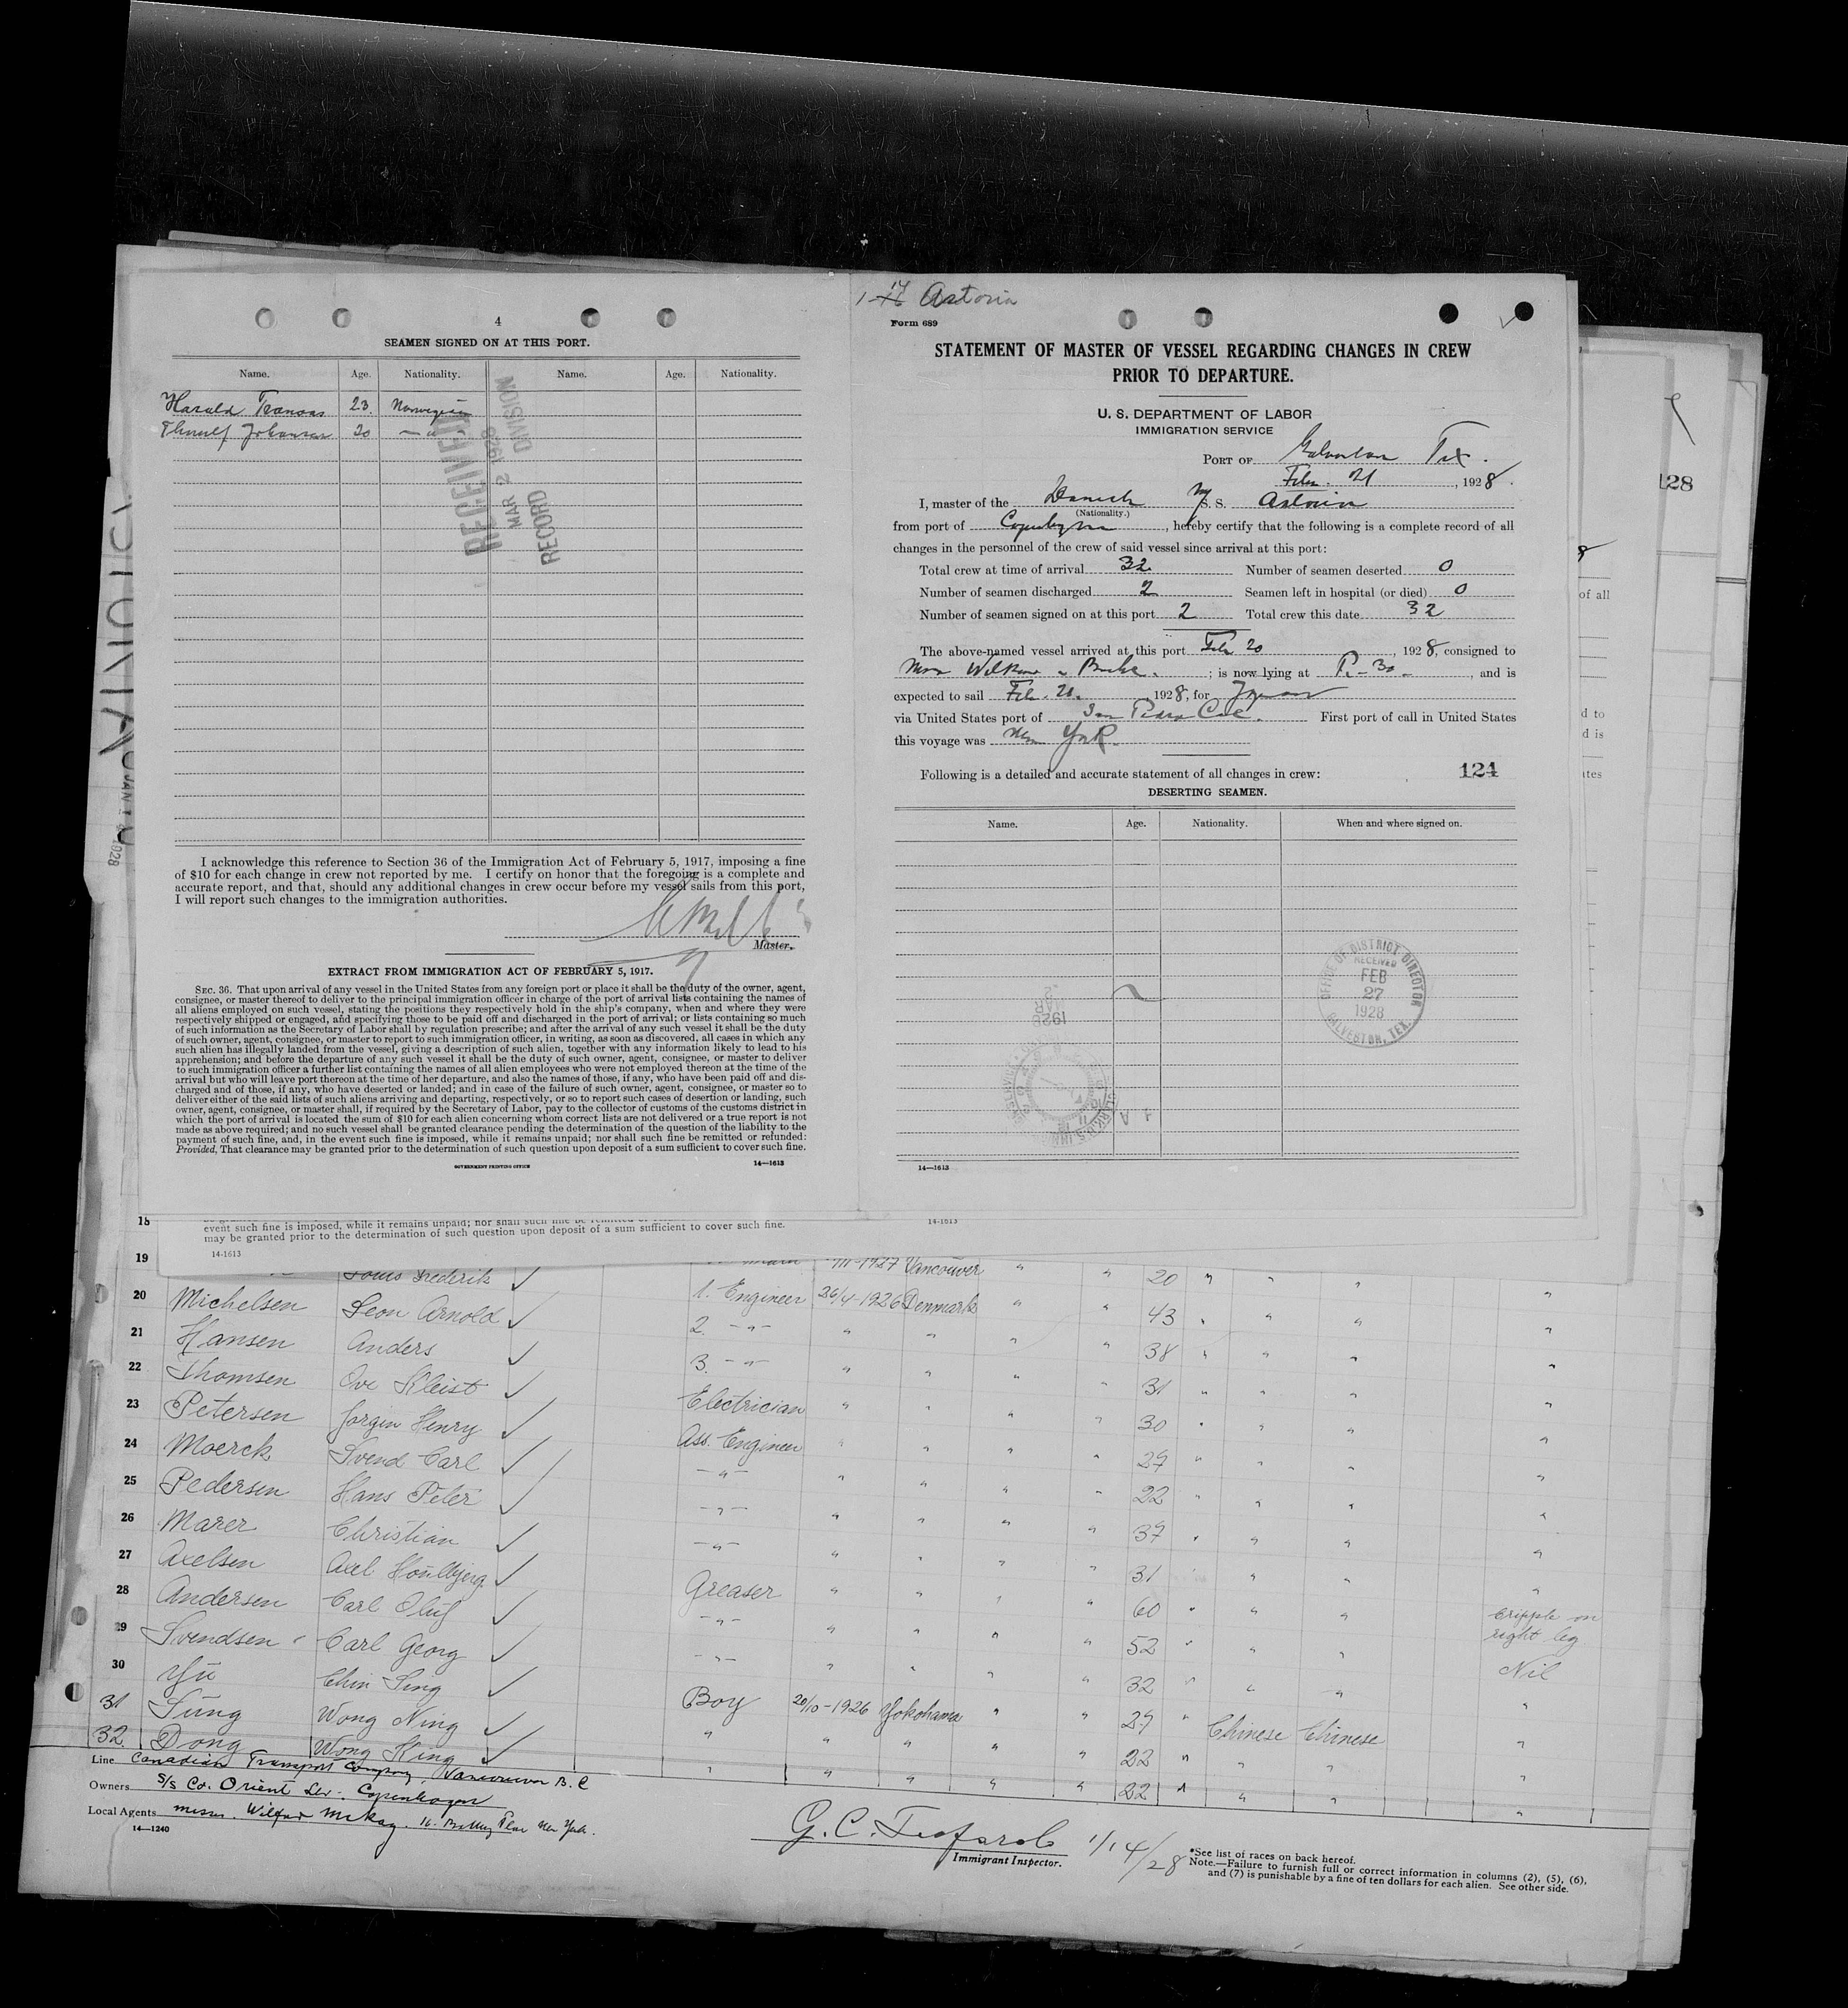 4
SEAMEN SIGNED ON AT THIS PORT.
Name. Age. Nationality. Name. Age. Nationality.
Harald 23. Norwegian
Johansen 20 — " —
RECEIVED
MAR 2 1928
RECORD DIVISION
I acknowledge this reference to Section 36 of the Immigration Act of February 5, 1917, imposing a fine
of $10 for each change in crew not reported by me. I certify on honor that the foregoing is a complete and
accurate report, and that, should any additional changes in crew occur before my vessel sails from this port,
I will report such changes to the immigration authorities.
Master.
EXTRACT FROM IMMIGRATION ACT OF FEBRUARY 5, 1917.
SEC. 36. That upon arrival of any vessel in the United States from any foreign port or place it shall be the duty of the owner, agent,
consignee, or master thereof to deliver to the principal immigration officer in charge of the port of arrival lists containing the names of
all aliens employed on such vessel, stating the positions they respectively hold in the ship's company, when and where they were
respectively shipped or engaged, and specifying those to be paid off and discharged in the port of arrival; or lists containing so much
of such information as the Secretary of Labor shall by regulation prescribe; and after the arrival of any such vessel it shall be the duty
of such owner, agent, consignee, or master to report to such immigration officer, in writing, as soon as discovered, all cases in which any
such alien has illegally landed from the vessel, giving a description of such alien, together with any information likely to lead to his
apprehension; and before the departure of any such vessel it shall be the duty of such owner, agent, consignee, or master to deliver
to such immigration officer a further list containing the names of all alien employees who were not employed thereon at the time of the
arrival but who will leave port thereon at the time of her departure, and also the names of those, if any, who have been paid off and dis-
charged and of those, if any, who have deserted or landed; and in case of the failure of such owner, agent, consignee, or master so to
deliver either of the said lists of such aliens arriving and departing, respectively, or so to report such cases of desertion or landing, such
owner, agent, consignee, or master shall, if required by the Secretary of Labor, pay to the collector of customs of the customs district in
which the port of arrival is located the sum of $10 for each alien concerning whom correct lists are not delivered or a true report is not
made as above required; and no such vessel shall be granted clearance pending the determination of the question of the liability to the
payment of such fine, and, in the event such fine is imposed, while it remains unpaid; nor shall such fine be remitted or refunded:
Provided, That clearance may be granted prior to the determination of such question upon deposit of a sum sufficient to cover such fine.
GOVERNMENT PRINTING OFFICE 14—1613
Astoria
Form 689
STATEMENT OF MASTER OF VESSEL REGARDING CHANGES IN CREW
PRIOR TO DEPARTURE.
U. S. DEPARTMENT OF LABOR
IMMIGRATION SERVICE
PORT OF Galveston Tex.
Feb. 21, 1928.
I, master of the Danish M/S. S. Astoria
(Nationality.)
from port of Copenhagen, hereby certify that the following is a complete record of all
changes in the personnel of the crew of said vessel since arrival at this port:
Total crew at time of arrival 32 Number of seamen deserted 0
Number of seamen discharged 2 Seamen left in hospital (or died) 0
Number of seamen signed on at this port 2 Total crew this date 32
The above-named vessel arrived at this port Feb 20, 1928, consigned to
; is now lying at P-30-, and is
expected to sail Feb. 21., 1928, for
via United States port of San Pedro Cal. First port of call in United States
this voyage was New York.
Following is a detailed and accurate statement of all changes in crew: 124
DESERTING SEAMEN.
Name. Age. Nationality. When and where signed on.
OFFICE OF DISTRICT DIRECTOR
RECEIVED
FEB
27
1928
GALVESTON, TEX.
14—1613
128
of all
d to
d is
ates
event such fine is imposed, while it remains unpaid; nor shall such fine be remitted or
may be granted prior to the determination of such question upon deposit of a sum sufficient to cover such fine.
14-1613
14-1613
18
19 Louis Frederik 1927 Vancouver " " 20 " " " "
20 Michelsen Leon Arnold 1. Engineer 26/4-1926 Denmark " " 43 " " " "
21 Hansen Anders 2. -"- " " " " 38 " " " "
22 Thomsen Ove Kleist 3. -"- " " " " 31 " " " "
23 Petersen Jørgen Henry Electrician " " " " 30 " " " "
24 Moerck Svend Carl Ass. Engineer " " " " 29 " " " "
25 Pedersen Hans Peter -"- " " " " 22 " " " "
26 Marer Christian -"- " " " " 37 " " " "
27 Axelsen Axel Houlbjerg -"- " " " " 31 " " "
28 Andersen Carl Oluf Greaser " " " " 60 " " " cripple on right leg
29 Svendsen Carl Georg -"- " " " " 52 " " " Nil
30 Yü Chin Sing -"- " " " " 32 " " " "
31 Süng Wong Ning Boy 20/10-1926 Yokohama " " 29 " Chinese Chinese "
32 Dong Wong King " " " " " 22 " " " "
" " " " " 22 " " " "
Line Canadian Transport Company, Vancouver B. C
Owners S/S Co. Orient Ltd. Copenhagen
Local Agents Messrs. McKay. 16. Battery Place New York.
14—1240
G. C. 1/14/28
Immigrant Inspector.
*See list of races on back hereof.
Note.—Failure to furnish full or correct information in columns (2), (5), (6),
and (7) is punishable by a fine of ten dollars for each alien. See other side.